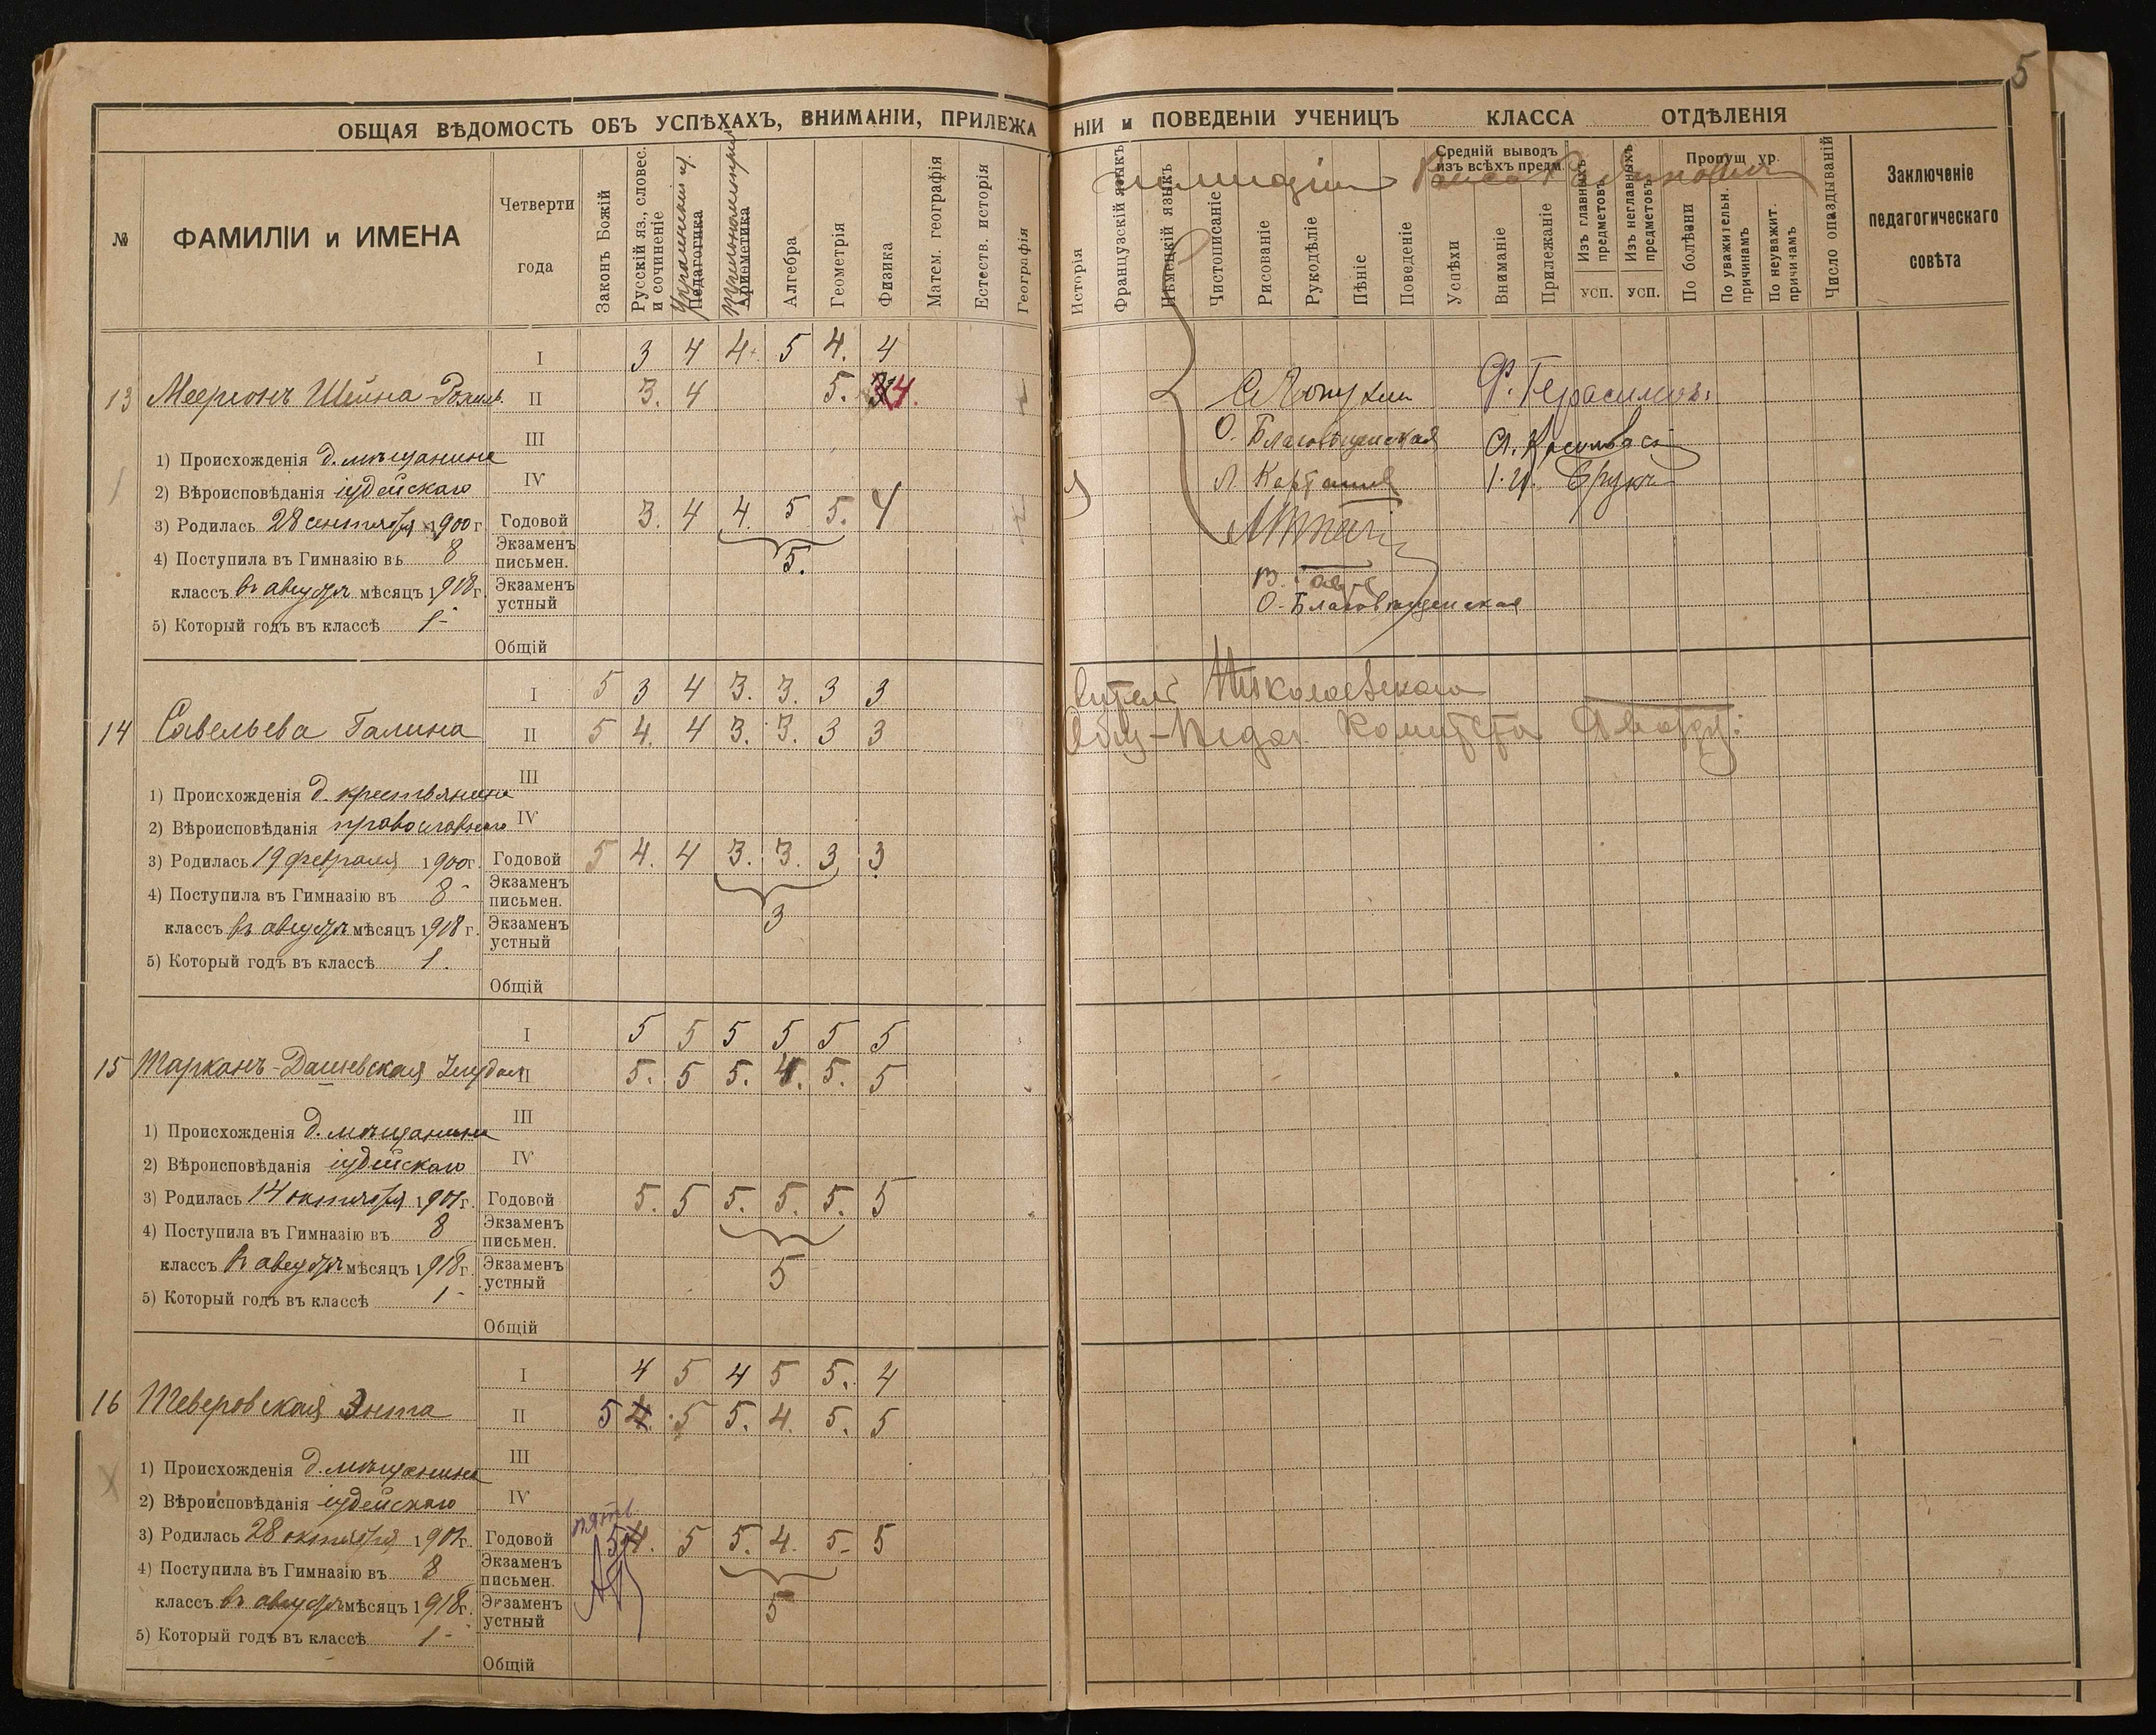 5
ОБЩАЯ ВѢДОМОСТЬ ОБЪ УСПѢХАХЪ, ВНИМАНІИ, ПРИЛЕЖА
№
ФАМИЛІИ и ИМЕНА
Четверти
года
Законъ Божій
Русскій яз., словес.
и сочиненіе
Педагогика
Ариѳметика
Тригонометрія
Алгебра
Геометрія
Физика
Матем. географія
Естеств. исторія
Географія
I 3 4 4 5 4. 4
13 Меерсонъ Шейна-Рохль. II 3. 4 5. 4.
III
1) Происхожденія д. мѣщанина
IV
2) Вѣроисповѣданія іудейскаго
3) Родилась 28 сентября 1900 г. Годовой 3. 4 4. 5 5. 4
Экзаменъ
4) Поступила въ Гимназію въ 8 письмен. 5.
классъ въ августѣ мѣсяцъ 1918 г. Экзаменъ
устный
5) Который годъ въ классѣ 1-
Общій
I 5 3 4 3. 3. 3 3
14 Савельева Галина II 5 4. 4 3. 3. 3 3
III
1) Происхожденія д. крестьянина
2) Вѣроисповѣданія православнаго IV
3) Родилась 19 февраля 1900 г. Годовой 5 4. 4 3. 3. 3 3
Экзаменъ
4) Поступила въ Гимназію въ 8- письмен.
3
классъ въ августѣ мѣсяцъ 1918 г. Экзаменъ
устный
5) Который годъ въ классѣ 1.
Общій
I 5 5 5 5 5 5
15 Тарканъ-Дашевская II 5. 5 5. 4. 5. 5
III
1) Происхожденія д. мѣщанина
2) Вѣроисповѣданія іудейскаго IV
3) Родилась 14 октября 1901 г. Годовой 5. 5 5. 5. 5. 5
Экзаменъ
4) Поступила въ Гимназію въ 8 письмен.
классъ въ августѣ мѣсяцъ 1918 г. Экзаменъ 5
устный
5) Который годъ въ классѣ 1-
Общій
I 4 5 4 5 5. 4
16 Тверовская Энта II 5 4. 5 5. 4. 5. 5
III
1) Происхожденія д. мѣщанина
2) Вѣроисповѣданія іудейскаго IV
пять
3) Родилась 28 октября 1901 г. Годовой 5 4. 5 5. 4. 5- 5
Экзаменъ
4) Поступила въ Гимназію въ 8 письмен.
классъ въ августѣ мѣсяцъ 1918 г. Экзаменъ 5
устный
5) Который годъ въ классѣ 1-
Общій
НІИ и ПОВЕДЕНІИ УЧЕНИЦЪ КЛАССА ОТДѢЛЕНІЯ
Исторія
Французскій языкъ
Нѣмецкій языкъ
Чистописаніе
Рисованіе
Рукодѣліе
Пѣніе
Поведеніе
Средній выводъ
изъ всѣхъ предм.
Успѣхи
Вниманіе
Прилежаніе
Изъ главныхъ
предметовъ
УСП.
Изъ неглавныхъ
предметовъ
УСП.
Пропущ ур.
По болѣзни
По уважительн.
причинамъ
По неуважит.
причинамъ
Число опаздываній
Заключеніе
педагогическаго
совѣта
Ф. Герасимов
О. Благовѣщенская
О. Благовѣщенская
Николаевскаго
Комитета